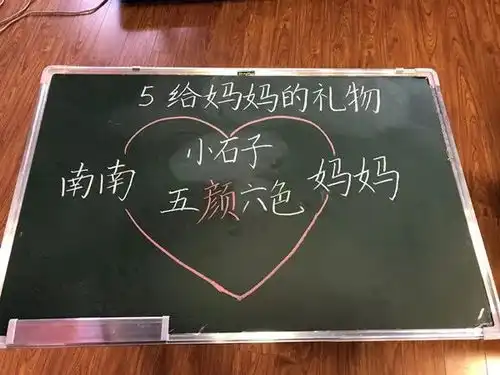 5 给妈妈的礼物
小石子
南南 五颜六色 妈妈